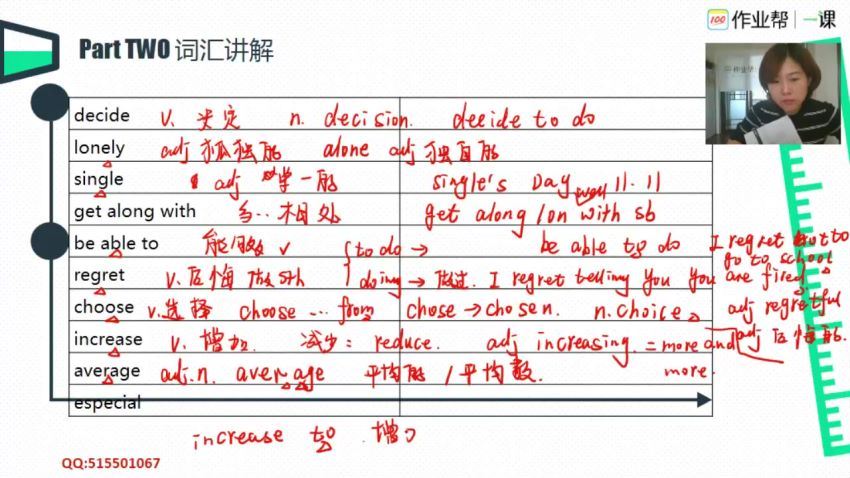 Part TWO 词汇讲解
100 作业帮 一课
decide v. 决定 n. decision. decide to do
lonely adj 孤独的 alone adj 独自的
single adj 单一的 single's Day 11.11
get along with 与..相处 get along/on with sb
be able to 能/够 be able to do I regret not to
to do → go to school
regret v.后悔 做sth doing → 做过. I regret telling you you are fired.
choose v.选择 choose ... from chose → chosen. n.choice adj regretful
increase v. 增加. 减少: reduce. adj increasing. = more and adj 后悔的.
average adj.n. average 平均的 / 平均数. more.
especial
increase to 增
QQ:515501067